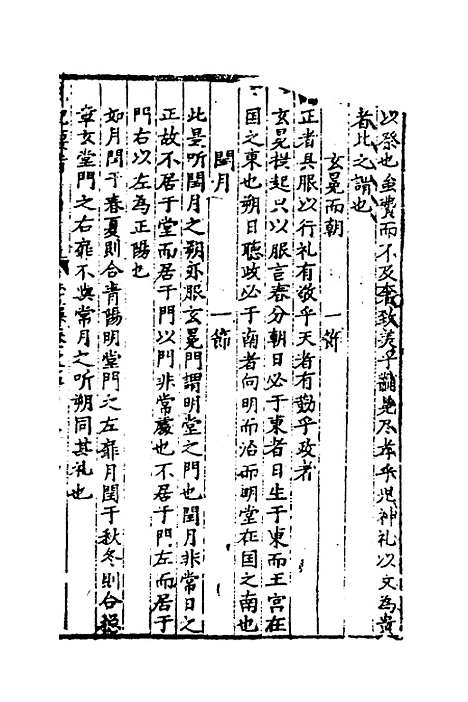 以祭也虽費而不及奢致羙乎黼冕尽孝乎鬼神礼以文為貴
者此之謂也
玄冕而朝 一節
正者具服以行礼有敬乎天者有勤乎政者
玄冕提起只以服言春分朝日必于東者日生于東而王宫在
国之東也朔日聽政必于南者向明而治而明堂在国之南也
閏月 一節
此是听閏月之朔亦服玄冕門謂明堂之門也閏月非常日之
正故不居于堂而居于門以門非常處也不居于門左而居于
門右以左為正陽也
如月閏于春夏則合青陽明堂門之左扉月閏于秋冬則合
章玄堂門之右扉不與常月之听朔同其礼也